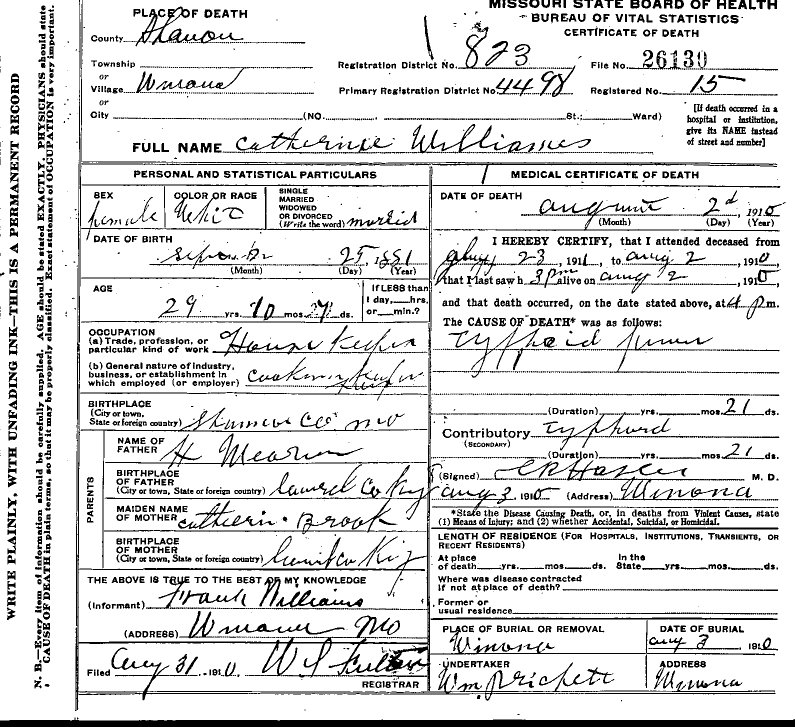 MISSOURI STATE BOARD OF HEALTH
BUREAU OF VITAL STATISTICS
CERTIFICATE OF DEATH
PLACE OF DEATH
County Shanon
Township
or
Village Winona
or
City (NO. St.; Ward)
Registration District No. 823 File No. 26130
Primary Registration District No. 4498 Registered No. 15
[If death occurred in a hospital or institution, give its NAME instead of street and number]
FULL NAME Catherine Williams
PERSONAL AND STATISTICAL PARTICULARS
SEX Female
COLOR OR RACE White
SINGLE MARRIED WIDOWED OR DIVORCED (Write the word) married
DATE OF BIRTH
25 1881
(Month) (Day) (Year)
AGE
29 yrs. 10 mos. ds.
If LESS than 1 day, hrs. or min.?
OCCUPATION
(a) Trade, profession, or particular kind of work House Keeper
(b) General nature of industry, business, or establishment in which employed (or employer)
BIRTHPLACE
(City or town, State or foreign country) Co mo
PARENTS
NAME OF FATHER H
BIRTHPLACE OF FATHER
(City or town, State or foreign country) Laurel Co Ky
MAIDEN NAME OF MOTHER Cathern Brook
BIRTHPLACE OF MOTHER
(City or town, State or foreign country)
THE ABOVE IS TRUE TO THE BEST OF MY KNOWLEDGE
(Informant) Frank Williams
(ADDRESS) Winona Mo
Filed Aug 31 1910
REGISTRAR
MEDICAL CERTIFICATE OF DEATH
DATE OF DEATH
August 2d 1910
(Month) (Day) (Year)
I HEREBY CERTIFY, that I attended deceased from
23, 191 , to Aug 2, 1910
that I last saw h 3 pm alive on Aug 2, 1910,
and that death occurred, on the date stated above, at 4 pm.
The CAUSE OF DEATH* was as follows:
Typhoid
(Duration) yrs. mos. 21 ds.
Contributory
(SECONDARY)
(Duration) yrs. mos. 21 ds.
(Signed) M. D.
Aug 3 1910 (Address) Winona
*State the Disease Causing Death, or, in deaths from Violent Causes, state (1) Means of Injury; and (2) whether Accidental, Suicidal, or Homicidal.
LENGTH OF RESIDENCE (FOR HOSPITALS, INSTITUTIONS, TRANSIENTS, OR RECENT RESIDENTS)
At place of death yrs. mos. ds. In the State yrs. mos. ds.
Where was disease contracted if not at place of death?
Former or usual residence
PLACE OF BURIAL OR REMOVAL
Winona
DATE OF BURIAL
Aug 3 1910
UNDERTAKER
Wm. Prichett
ADDRESS
Winona
WRITE PLAINLY, WITH UNFADING INK—THIS IS A PERMANENT RECORD
N. B.—Every item of information should be carefully supplied. AGE should be stated EXACTLY. PHYSICIANS should state
CAUSE OF DEATH in plain terms, so that it may be properly classified. Exact statement of OCCUPATION is very important.